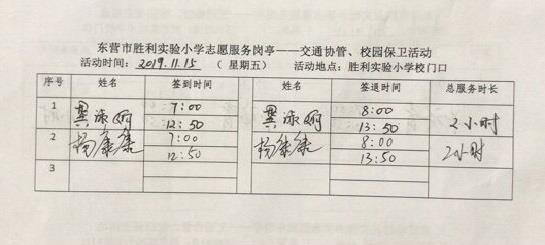 东营市胜利实验小学志愿服务岗亭——交通协管、校园保卫活动
活动时间：2019.11.15 （ 星期五） 活动地点：胜利实验小学校门口
序号 姓名 签到时间 姓名 签退时间 总服务时长
1 7:00 8:00 2小时
12:50 13:50
2 杨康康 7:00 杨康康 8:00 2小时
12:50 13:50
3